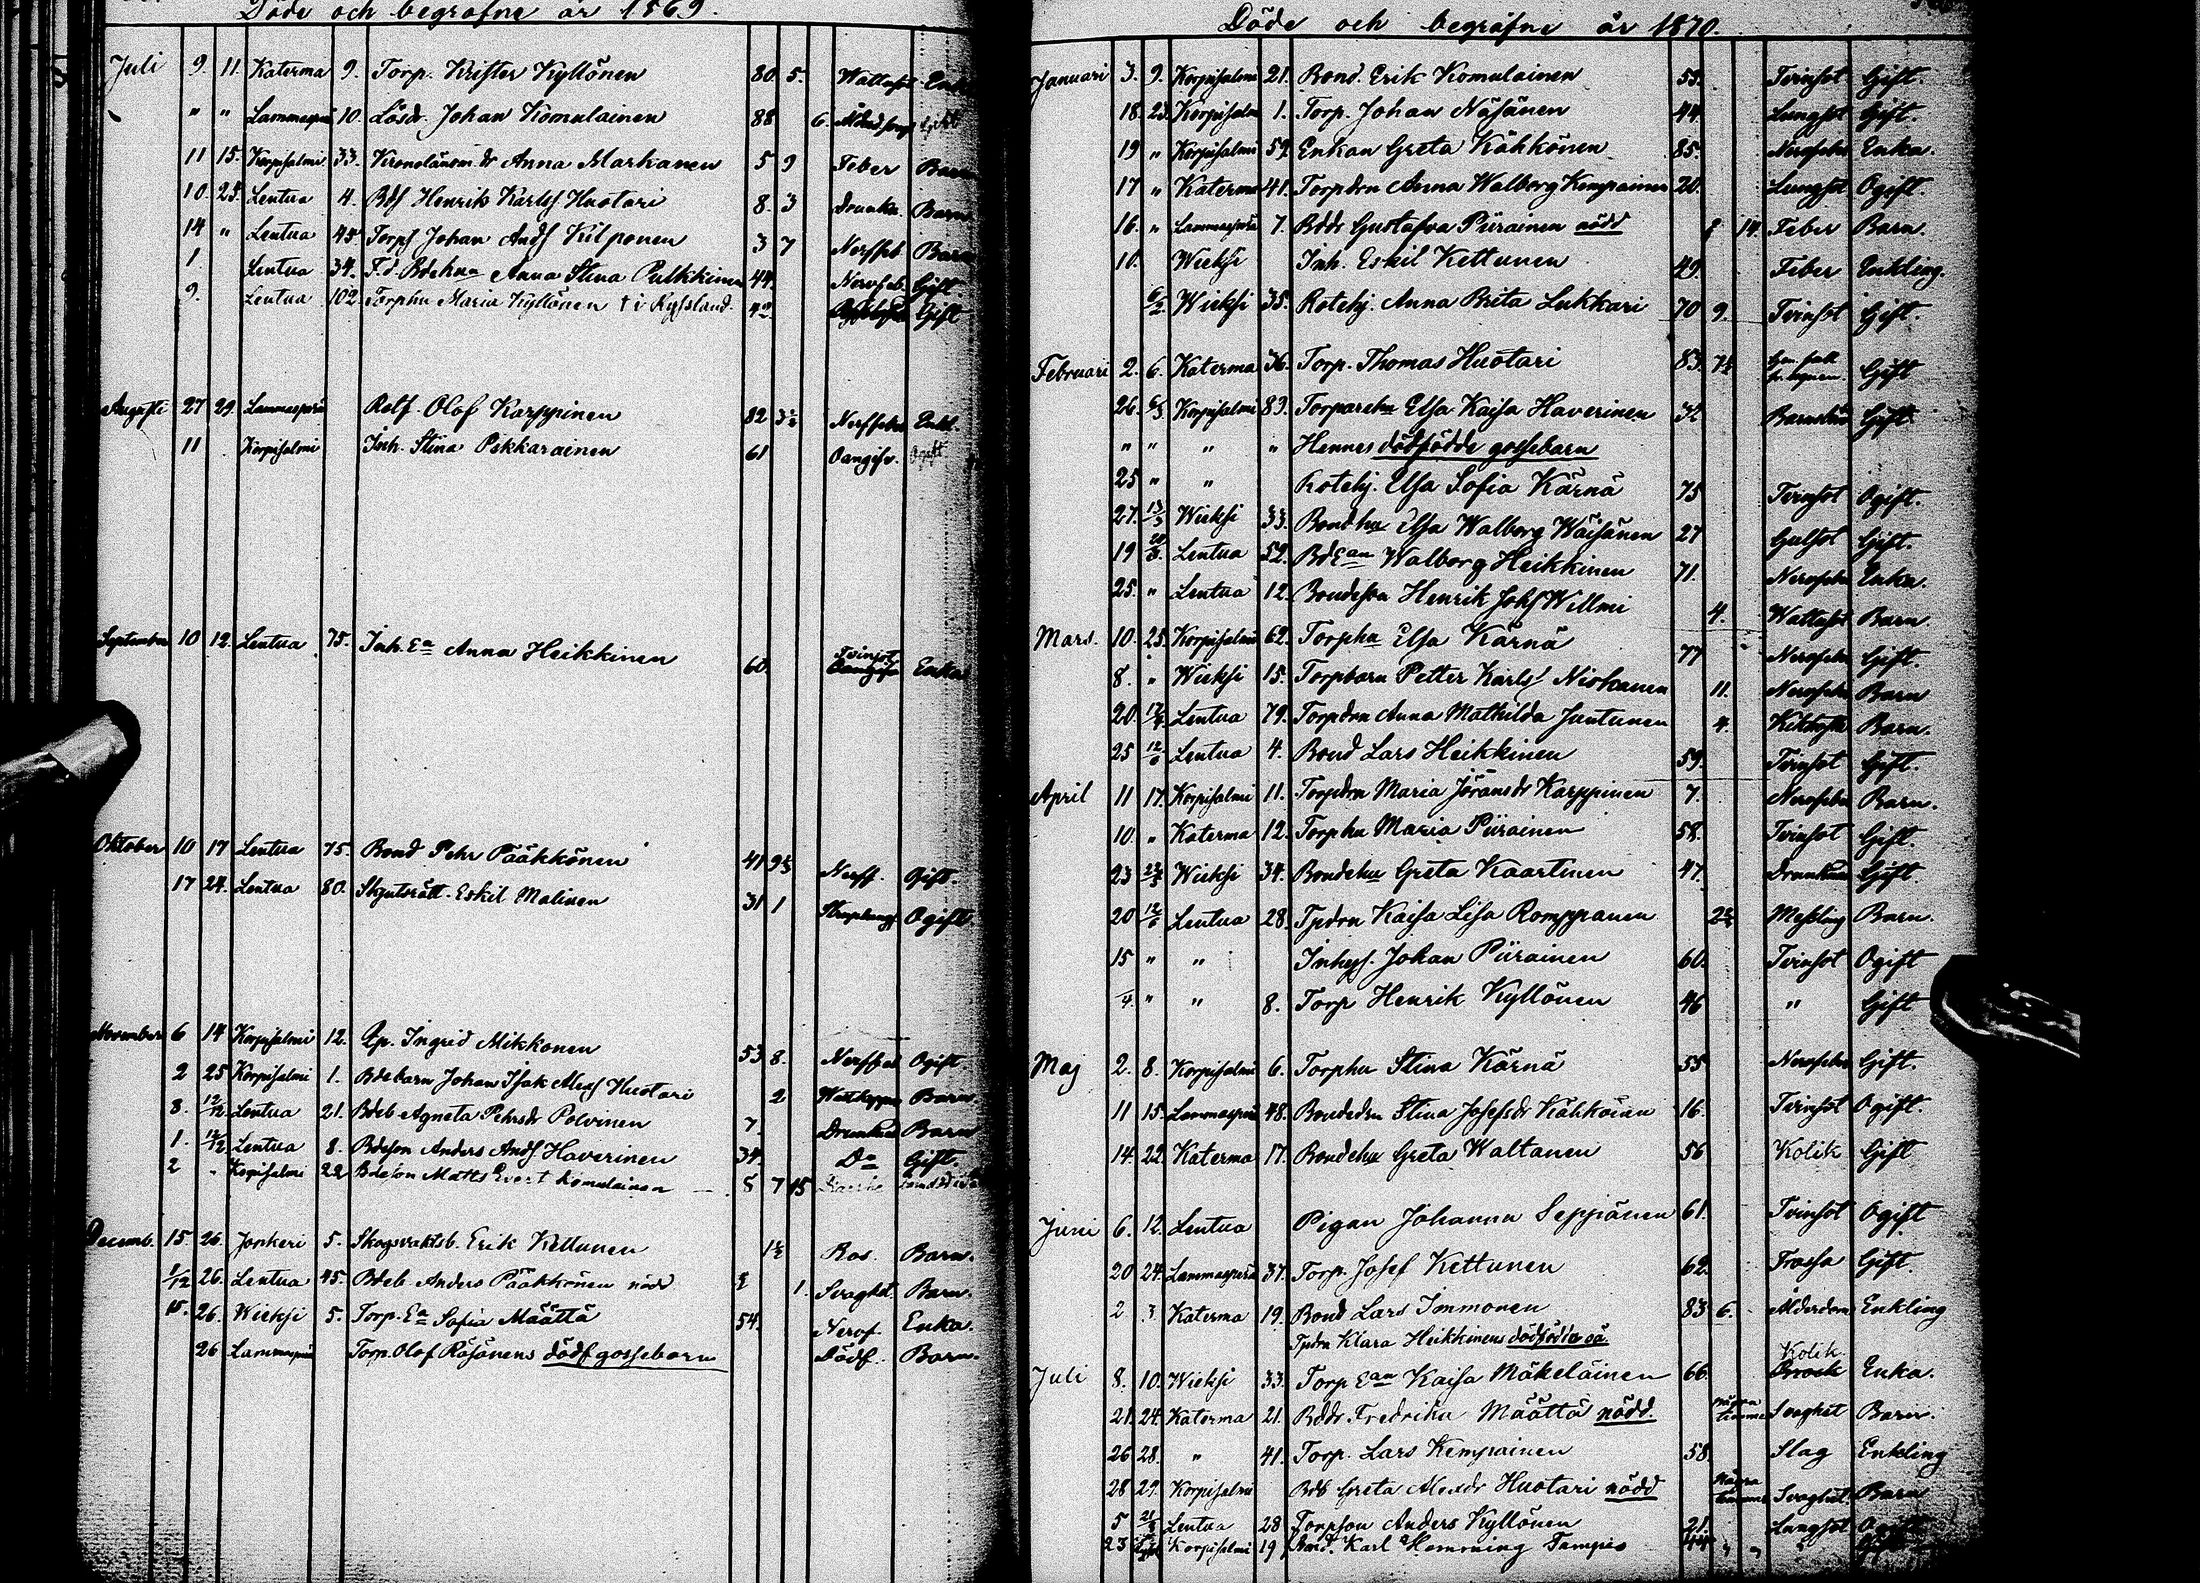 Döde och begrafne år 1869.
Juli 9. 11. Katerma 9. Torp. Krister Kyllönen 80. 5. Wattusot Enkl
" " Lammasperä 10. Lösdr. Johan Komulainen 88 6. Gift
11 15. Korpisalmi 33. Kronolänsm. dr Anna Markanen 5 9 Feber Barn
10. 25. Lentua 4. Bds Henrik Karlss Huotari 8. 3 Drunkn. Barn
14 " Lentua 45. Torps Johan Ands Kilponen 3 7 Nerffeb Barn
1. Lentua 34. F.d. Bdehua Anna Stina Pulkkinen 44. Nervfeb. Gift
9. Lentua 102. Torphu Maria Kyllönen † i Ryssland. 42. Gift
Augusti 27 29. Lammasperä Rotf. Olof Karppinen 82 3½ Nerffeber Enkl.
11 Korpisalmi Inh. Stina Pekkarainen 61 Oangifv. Ogift
September 10 12. Lentua 75. Inh. Ea Anna Heikkinen 60. Tvinsot Enka
Oktober 10 17 Lentua 75. Bond Pehr Pääkkönen 41 9½ Nerff. Gift.
17 24. Lentua 80. Skjutsrätt. Eskil Malinen 31 1 Ogift
November 6 14 Korpisalmi 12. Pp. Ingrid Mikkonen 53 8. Nerffeb Ogift
2 25 Korpisalmi 1. Bdebarn Johan Isak Alexs Huotari 2 Barn
8. 12/12 Lentua 21. Bdeb Agneta Pehrsdr Polvinen 7. Drunknad Barn
1. 12/12 Lentua 8. Bdeson Anders Ands Haverinen 34. Do Gift.
2 " Korpisalmi 22 Bdeson Matts Evert Komulainen 8 7 15
Decemb. 15. 26. Jonkeri 5. Skogvaktsb. Erik Kettunen 1½ Ros. Barn.
1/12 26. Lentua 45. Bdeb. Anders Pääkkönen nödd 1. Svaghet Barn.
15. 26. Wieksi 5. Torp. Ea Sofia Määttä 54. Nervf. Enka.
26 Lammasperä Torp. Olof Räsänens dödf gossebarn Dödf. Barn.
Döde och begrafne år 1870.
Januari 3. 9. Korpisalmi 21. Bond. Erik Komulainen 55. Tvinsot Gift.
18. 23. Korpisalmi 1. Torp. Johan Näsänen 44. Lungsot Gift.
19 " Korpisalmi 59. Enkan Greta Kähkönen 85. Nervfeber Enka.
17 " Katerma 41. Torpdrn Anna Walborg Kempainen 20. Lungsot Ogift
16. " Lammasperä 7. Bddr Gustafva Piirainen nödd 14. Feber Barn.
10. Wieksi Inh. Eskil Kettunen 49. Feber Enkling.
6/2 Wieksi 35. Rotehj. Anna Brita Lukkari 70 9. Tvinsot Gift.
Februari 2. 6. Katerma 36. Torp. Thomas Huotari 83. 7½ Gm. fall Gift
26. 6/3 Korpisalmi 83. Torparehu Elsa Kaisa Haverinen 32 Barnsbörd Gift.
" " " " Hennes dödfödde gossebarn
25 " " Rotehj. Elsa Sofia Kärnä 75 Tvinsot Ogift.
27. 13/3 Wieksi 33. Bondhu Elsa Walborg Wäisänen 27 Gulsot Gift.
19 20/3 Lentua 52. BdEan Walborg Heikkinen 71. Nervfeber Enka.
25. " Lentua 12. Bondeson Henrik Johs Willmi 4. Wattusot Barn
Mars. 10. 25. Korpisalmi 62. Torphu Elsa Kärnä 77 Nervfeber Gift.
8. " Wieksi 15. Torpbarn Petter Karls Niskanen 11. Nervfeber Barn
20. 17/4 Lentua 79. Torpdrn Anna Mathilda Juntunen 4. Kikhosta Barn.
25 12/6 Lentua 4. Bond Lars Heikkinen 59. Tvinsot Gift.
April 11 17. Korpisalmi 11. Torpdrn Maria Jöransdr Karppinen 7. Nervfeber Barn.
10. " Katerma 12. Torphu Maria Piirainen 58. Tvinsot Gift.
23 Wieksi 34. Bondehu Greta Kaartinen 47. Drunknad Gift.
20 12/6 Lentua 28. Tpdrn Kaisa Lisa Romppanen Messling Barn.
15 " " Inhys. Johan Piirainen 60. Tvinsot Ogift
/4 " " 8. Torp Henrik Kyllönen 46 " Gift
Maj 2. 8. Korpisalmi 6. Torphu Stina Kärnä 55 Nervfeber Gift.
11 15. Lammasperä 48. Bondedrn Stina Josefsdr Kähköinen 16. Tvinsot Ogift.
14. 22. Katerma 17. Bondehu Greta Waltanen 56 Kolik Gift
Juni 6. 12. Lentua Pigan Johanna Seppänen 61. Tvinsot Ogift
20 24. Lammasperä 37. Torp. Josef Kettunen 62. Frossa Gift.
2 3 Katerma 19. Bond Lars Immonen 83 6. Ålderdom Enkling
Tpdrn Klara Heikkinens dödfödda oä.
Juli 8. 10. Wieksi 33. Torp Ean Kaisa Mäkeläinen 66. Kolik Enka.
21. 24. Katerma 21. Bddr Fredrika Määttä nödd. några timmar Svaghet Barn.
26 28. " 41. Torp. Lars Kempainen 58. Slag Enkling
28 29. Korpisalmi Bdb Greta Alexdr Huotari nödd några timmar Svaghet Barn
5 21/8 Lentua 28 Torpson Anders Kyllönen 21. Lungsot Ogift
23 Korpisalmi 19 Bond. Karl Hemming Tampio 44 " "